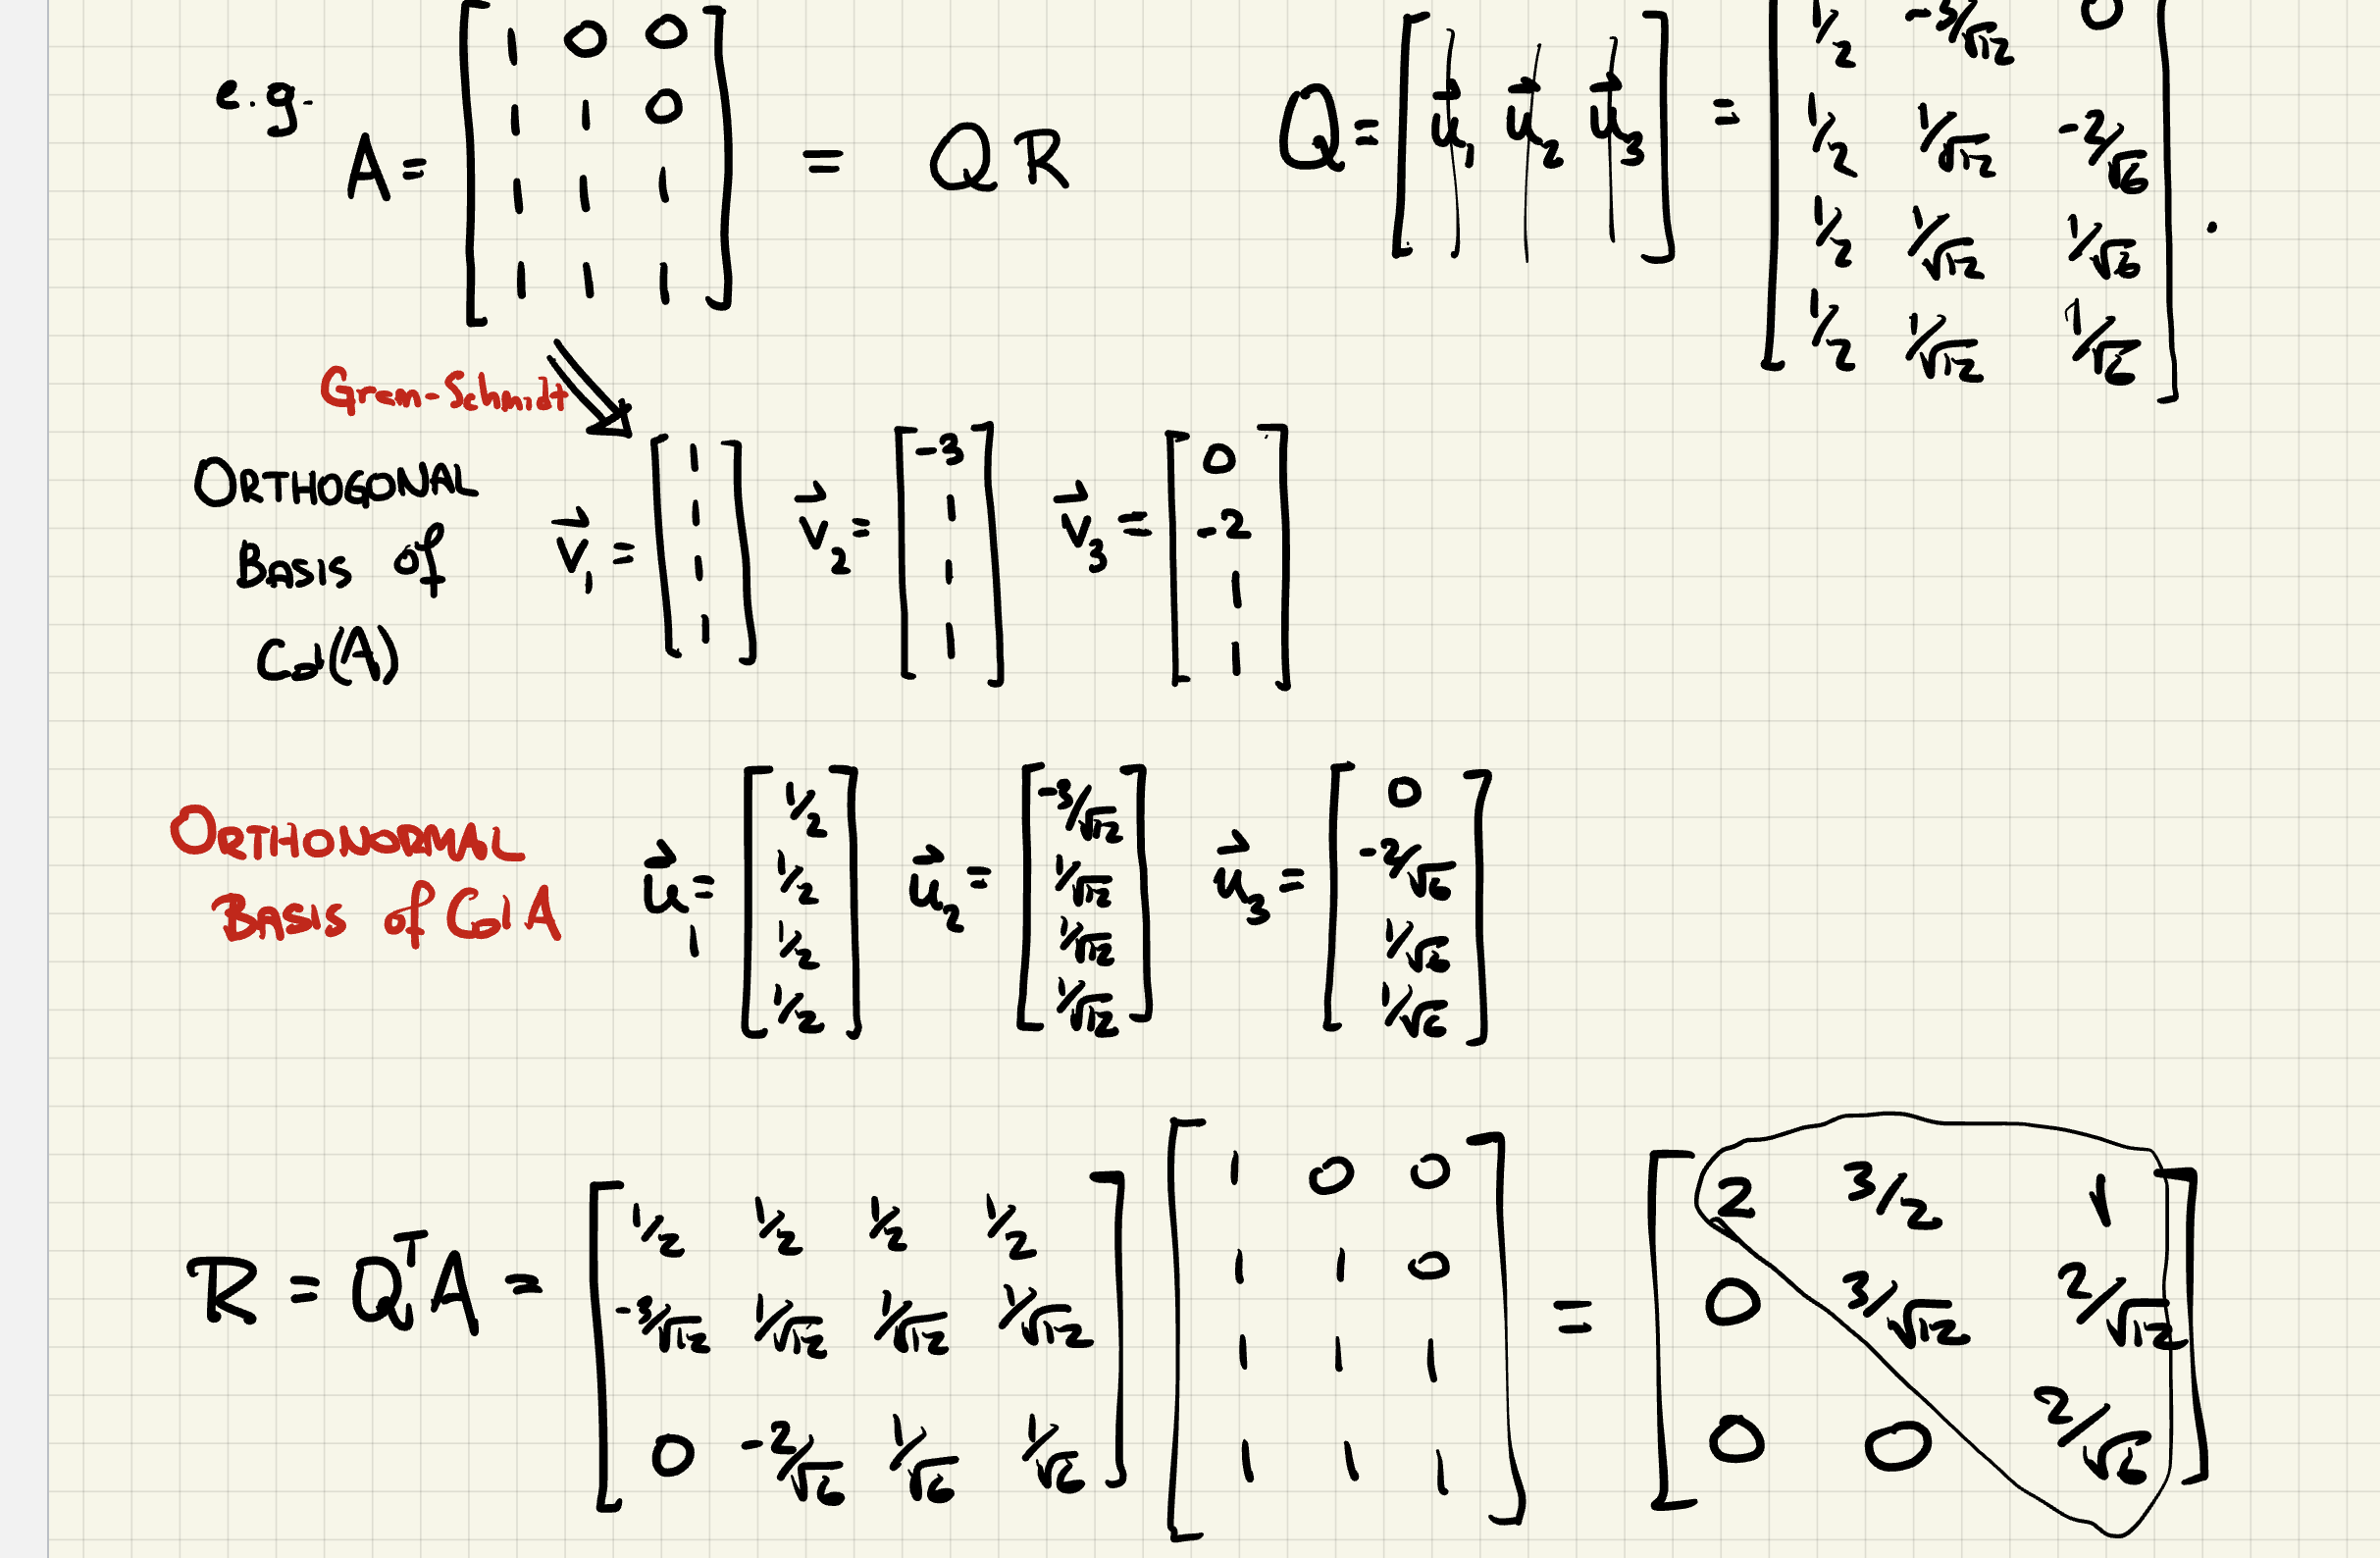 e.g. A = [1 0 0; 1 1 0; 1 1 1; 1 1 1] = QR
Q = [u⃗₁ u⃗₂ u⃗₃] = [1/2 -3/√12 0; 1/2 1/√12 -2/√6; 1/2 1/√12 1/√6; 1/2 1/√12 1/√6].
Gram-Schmidt
ORTHOGONAL
BASIS of
Col(A)
v⃗₁ = [1; 1; 1; 1] v⃗₂ = [-3; 1; 1; 1] v⃗₃ = [0; -2; 1; 1]
ORTHONORMAL
BASIS of Col A
u⃗₁ = [1/2; 1/2; 1/2; 1/2] u⃗₂ = [-3/√12; 1/√12; 1/√12; 1/√12] u⃗₃ = [0; -2/√6; 1/√6; 1/√6]
R = QᵀA = [1/2 1/2 1/2 1/2; -3/√12 1/√12 1/√12 1/√12; 0 -2/√6 1/√6 1/√6] [1 0 0; 1 1 0; 1 1 1; 1 1 1] = [2 3/2 1; 0 3/√12 2/√12; 0 0 2/√6]